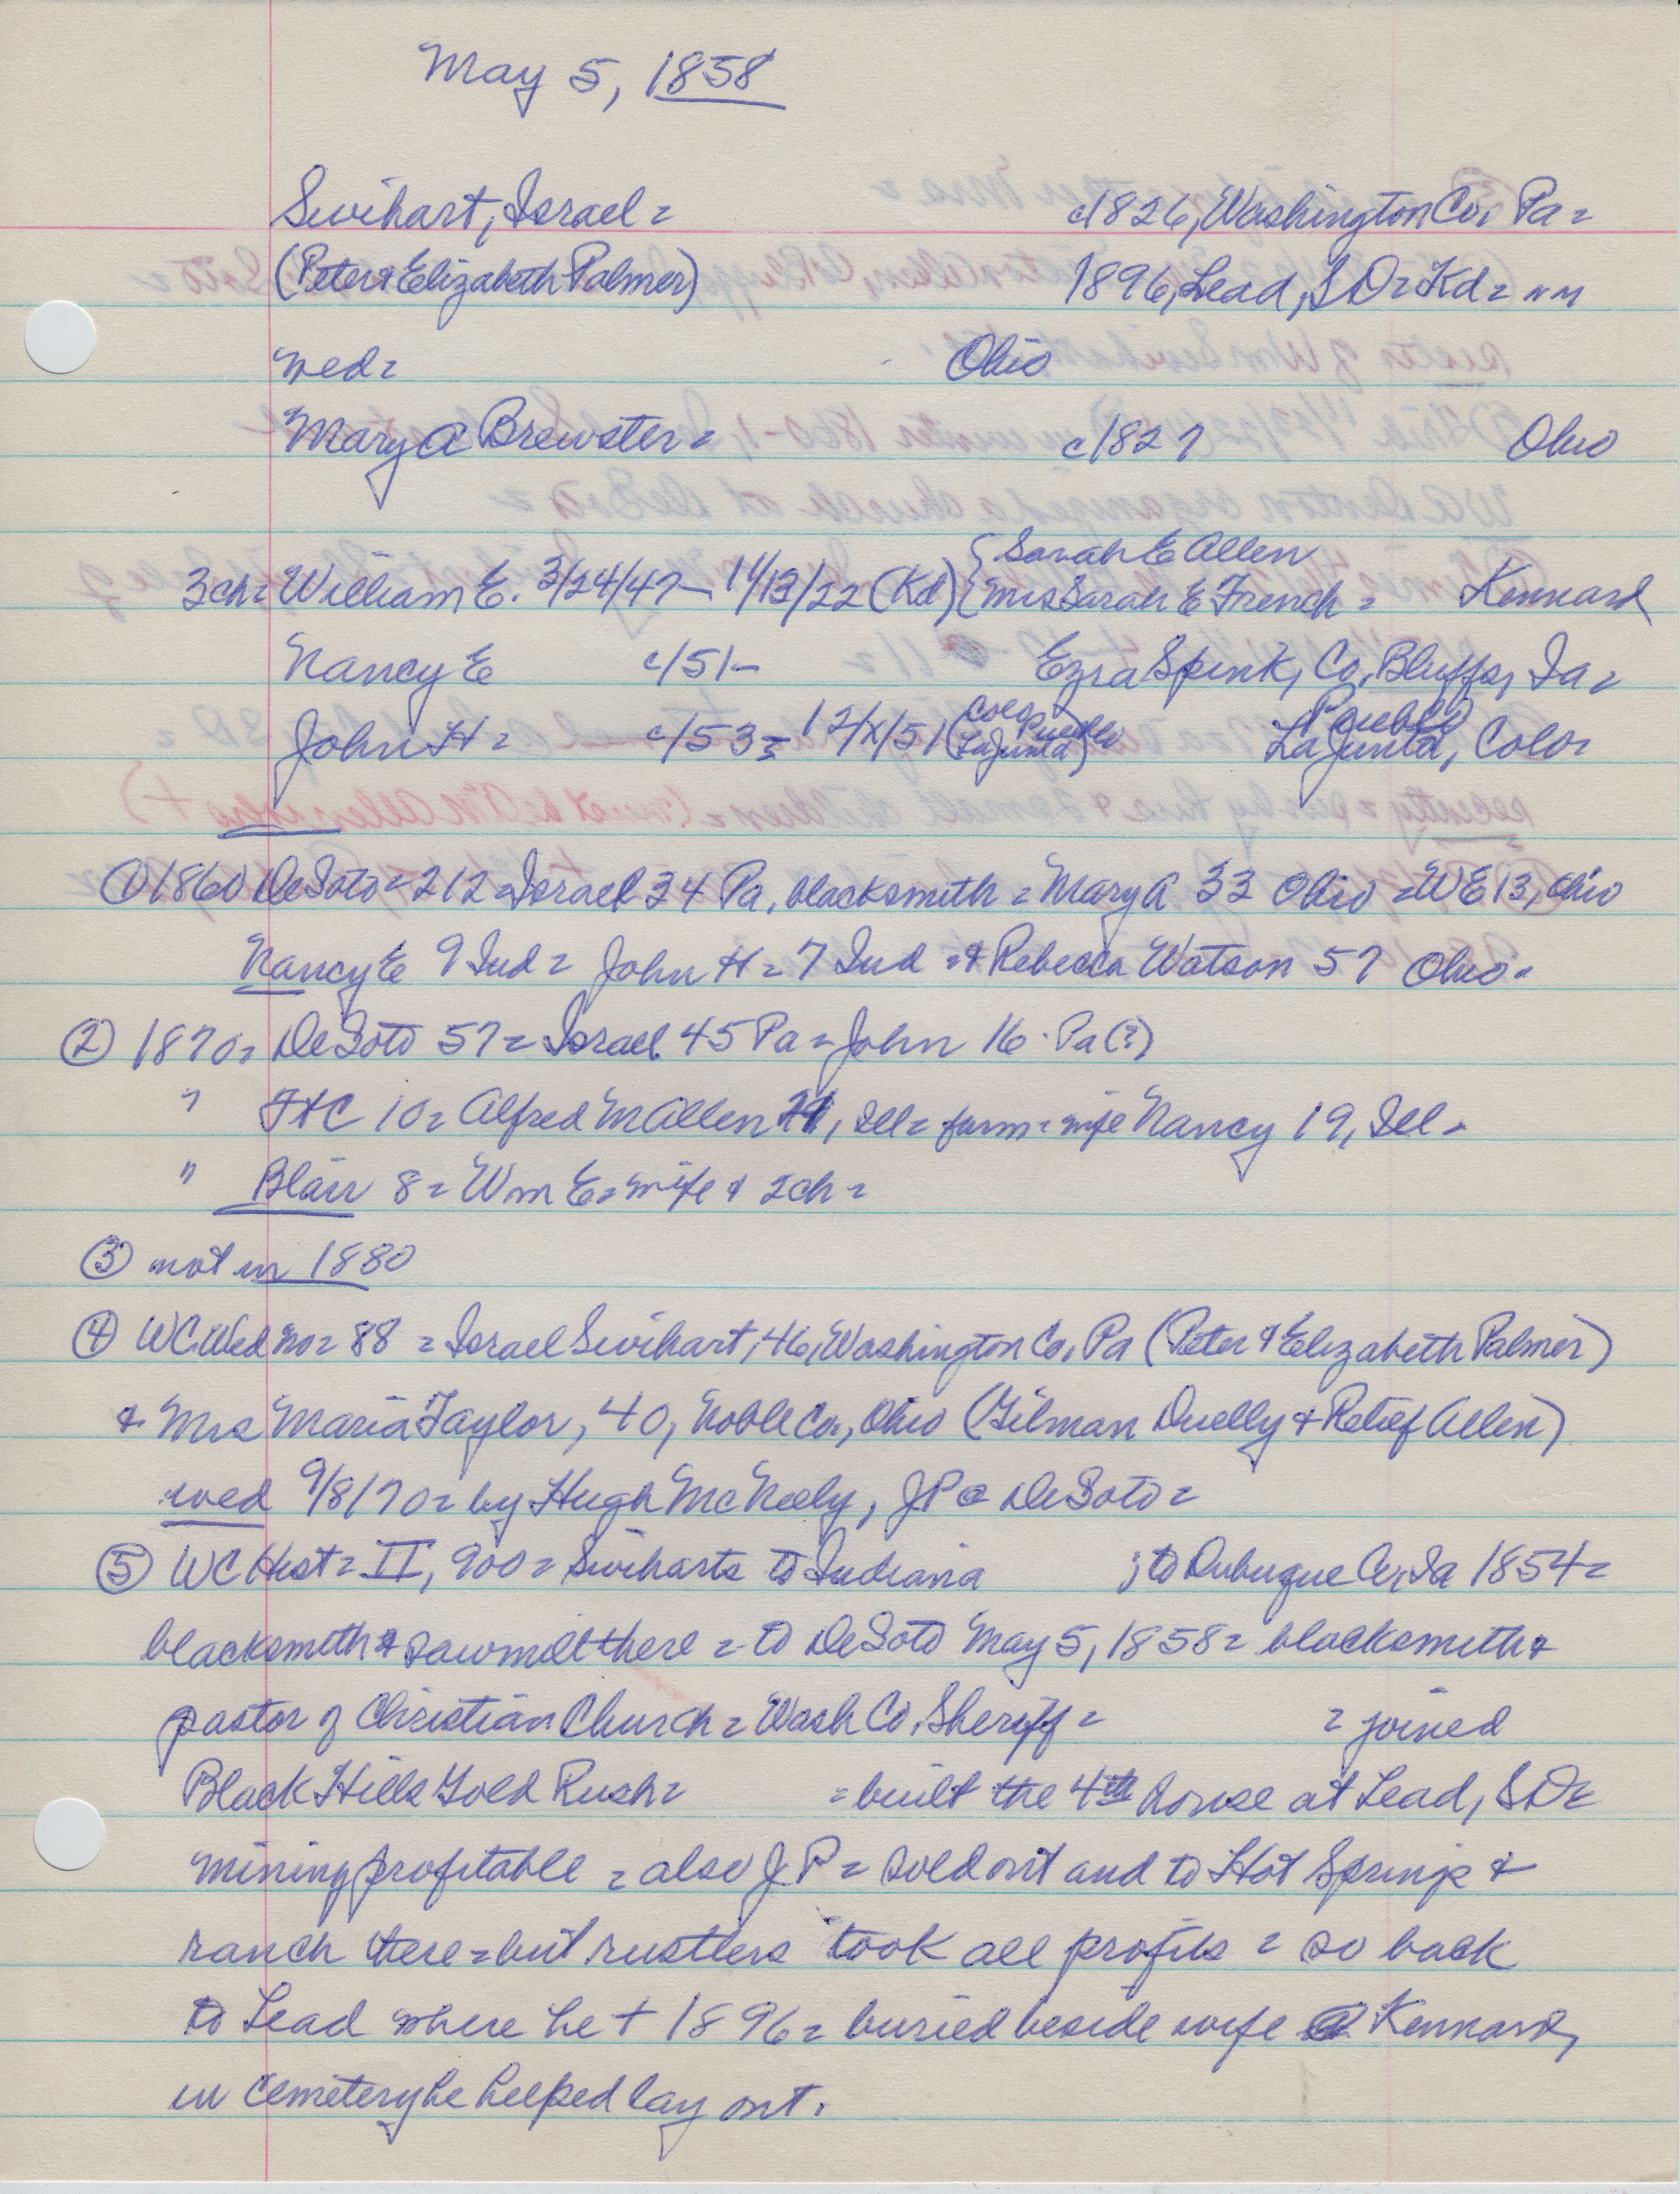 May 5, 1858
Swihart, Israel = c1826, Washington Co, Pa =
(Peter & Elizabeth Palmer) 1896, Lead, SD = Kd = nm
wed = Ohio
Mary A Brewster = c1827 Ohio
{ Sarah E Allen
3ch = William E. 3/24/47 - 11/13/22 (Kd) { Mrs Sarah E French = Kennard
Nancy E c/51- Ezra Spink, Co. Bluffs, Ia =
John H = c/53 = 12/x/51 (Colo Pueblo LaJunta) Pueblo LaJunta, Colo =
① 1860 DeSoto = 212 = Israel 34 Pa, blacksmith = Mary A 33 Ohio = WE 13, Ohio
Nancy E 9 Ind = John H = 7 Ind = & Rebecca Watson 57 Ohio =
② 1870 = DeSoto 57 = Israel 45 Pa = John 16 Pa (?)
" FtC 10 = Alfred M Allen 21, Ill = farm = wife Nancy 19, Ill -
" Blair 8 = Wm E = wife & 2ch =
③ not in 1880
④ WC Wed no = 88 = Israel Swihart, 46, Washington Co, Pa (Peter & Elizabeth Palmer)
& Mrs Maria Taylor, 40, Noble Co, Ohio (Gilman Duelly & Relief Allen)
wed 9/8/70 = by Hugh McNeely, JP @ DeSoto =
⑤ WC Hist = II, 900 = Swiharts to Indiana ; to Dubuque Co, Ia 1854 =
blacksmith & sawmill there = to DeSoto May 5, 1858 = blacksmith &
pastor of Christian Church = Wash Co. Sheriff = = joined
Black Hills Gold Rush = = built the 4th house at Lead, SD =
mining profitable = also JP = sold out and to Hot Springs &
ranch there = but rustlers took all profits = so back
to Lead where he + 1896 = buried beside wife @ Kennard,
in cemetery he helped lay out.